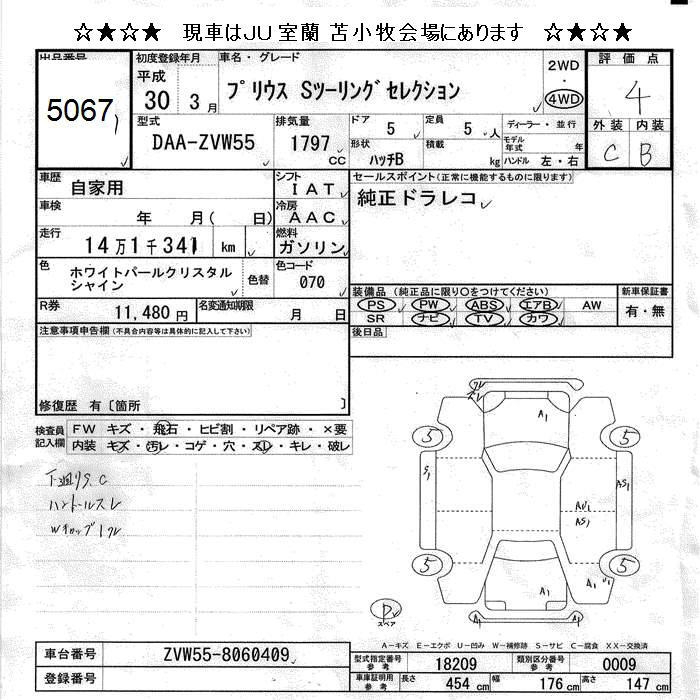 ☆★☆★ 現車はJU室蘭 苫小牧会場にあります ☆★☆★
出品番号
5067
初度登録年月
平成
30 3月
車名・グレード
プリウス Sツーリングセレクション
2WD
・
4WD
評価点
4
外装 内装
C B
型式
DAA-ZVW55
排気量
1797
CC
ドア
5
定員
5 人
形状
ハッチB
積載
kg
ディーラー・並行
モデル
年式
年
ハンドル 左・右
車歴
自家用
シフト
IAT
車検
年 月( 日)
冷房
AAC
走行
14万1千341 km
燃料
ガソリン
色
ホワイトパールクリスタル
シャイン
色替
色コード
070
R券
11,480 円
名変通知期限
月 日
セールスポイント(正常に機能するものに限ります)
純正ドラレコ
装備品 (純正品に限り○をつけてください)
PS PW ABS エアB AW
SR ナビ TV カワ
新車保証書
有・無
後日品
注意事項申告欄(不具合内容等は具体的に記入して下さい)
修復歴 有〔箇所 〕
検査員
記入欄
FW キズ・飛石・ヒビ割・リペア跡・×要
内装 キズ・汚レ・コゲ・穴・スレ・キレ・破レ
下廻りS.C
ハンドルスレ
Wキャップ1クレ
A1
5 5
S1
AS1
AU1
AS1
5 5
A1
A1
スペア
A-キズ E-エクボ U-凹み W-補修跡 S-サビ C-腐食 XX-交換済
車台番号
ZVW55-8060409
登録番号
型式指定番号
参考
18209
類別区分番号
参考
0009
車庫証明用
参考
長さ
454 cm
幅
176 cm
高さ
147 cm